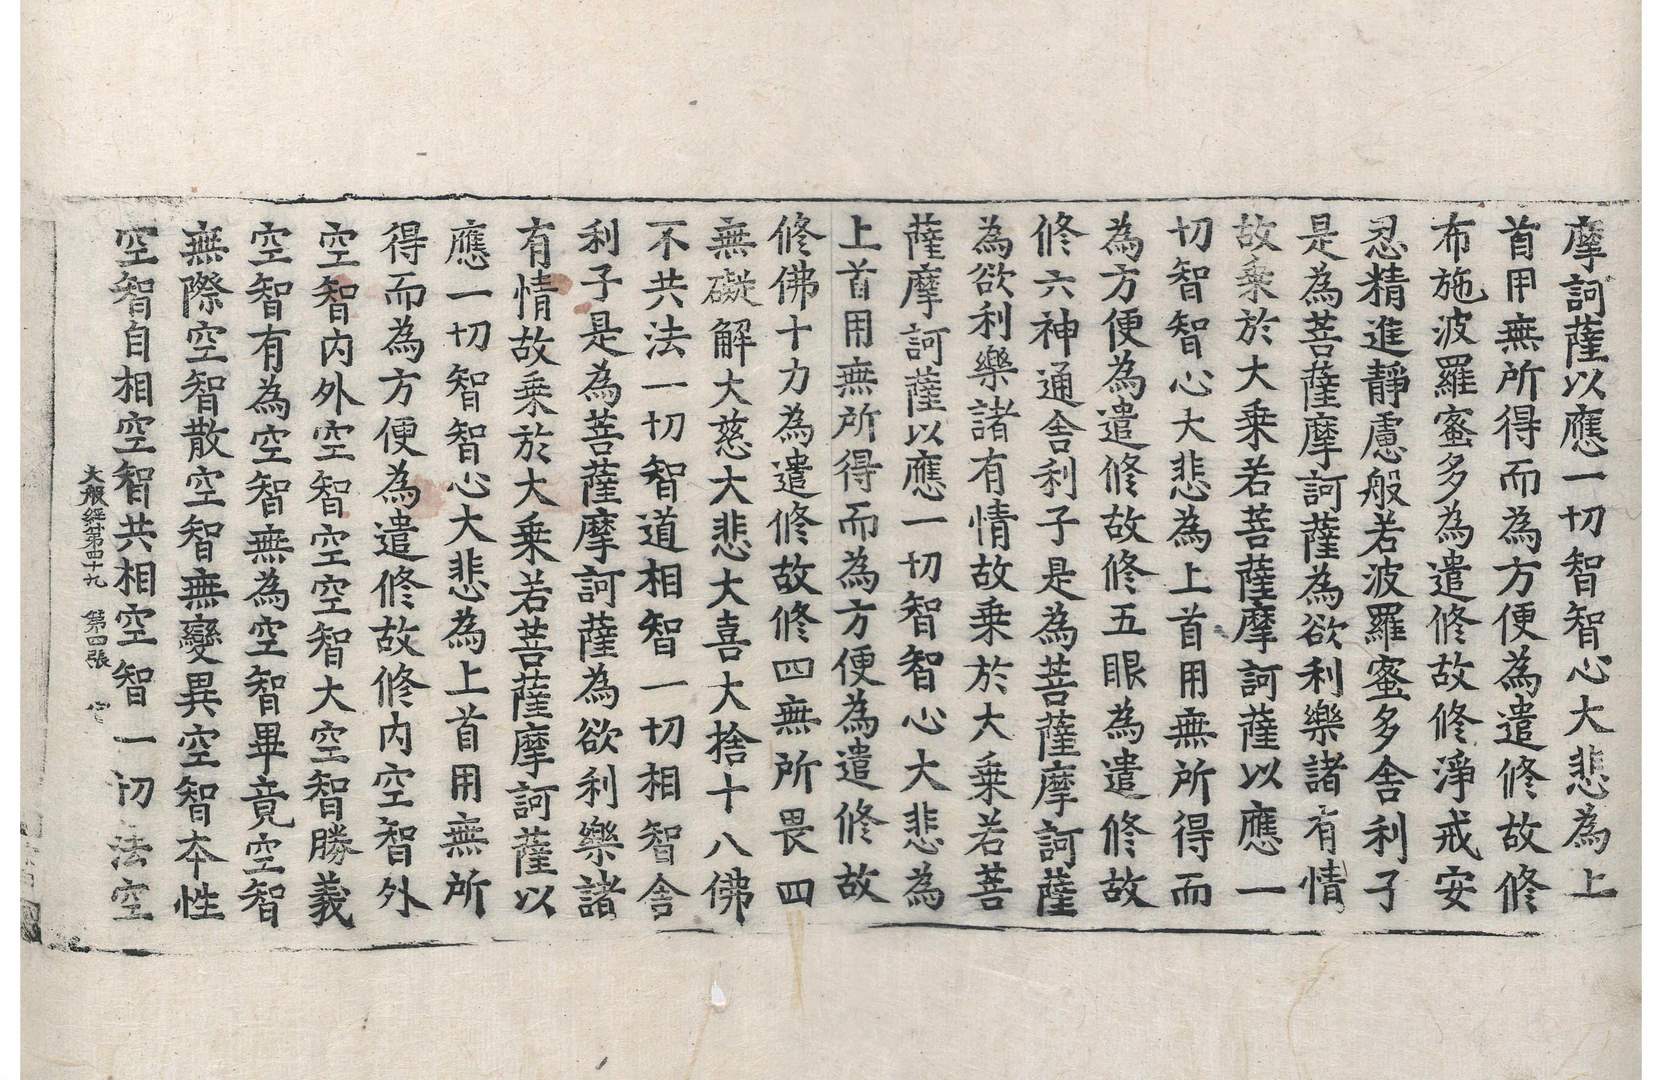 摩訶薩以應一切智智心大悲為上
首用無所得而為方便為遣修故修
布施波羅蜜多為遣修故修淨戒安
忍精進靜慮般若波羅蜜多舍利子
是為菩薩摩訶薩為欲利樂諸有情
故乘於大乘若菩薩摩訶薩以應一
切智智心大悲為上首用無所得而
為方便為遣修故修五眼為遣修故
修六神通舍利子是為菩薩摩訶薩
為欲利樂諸有情故乘於大乘若菩
薩摩訶薩以應一切智智心大悲為
上首用無所得而為方便為遣修故
修佛十力為遣修故修四無所畏四
無礙解大慈大悲大喜大捨十八佛
不共法一切智道相智一切相智舍
利子是為菩薩摩訶薩為欲利樂諸
有情故乘於大乘若菩薩摩訶薩以
應一切智智心大悲為上首用無所
得而為方便為遣修故修內空智外
空智內外空智空空智大空智勝義
空智有為空智無為空智畢竟空智
無際空智散空智無變異空智本性
空智自相空智共相空智一切法空
大般經第四十九 第四張